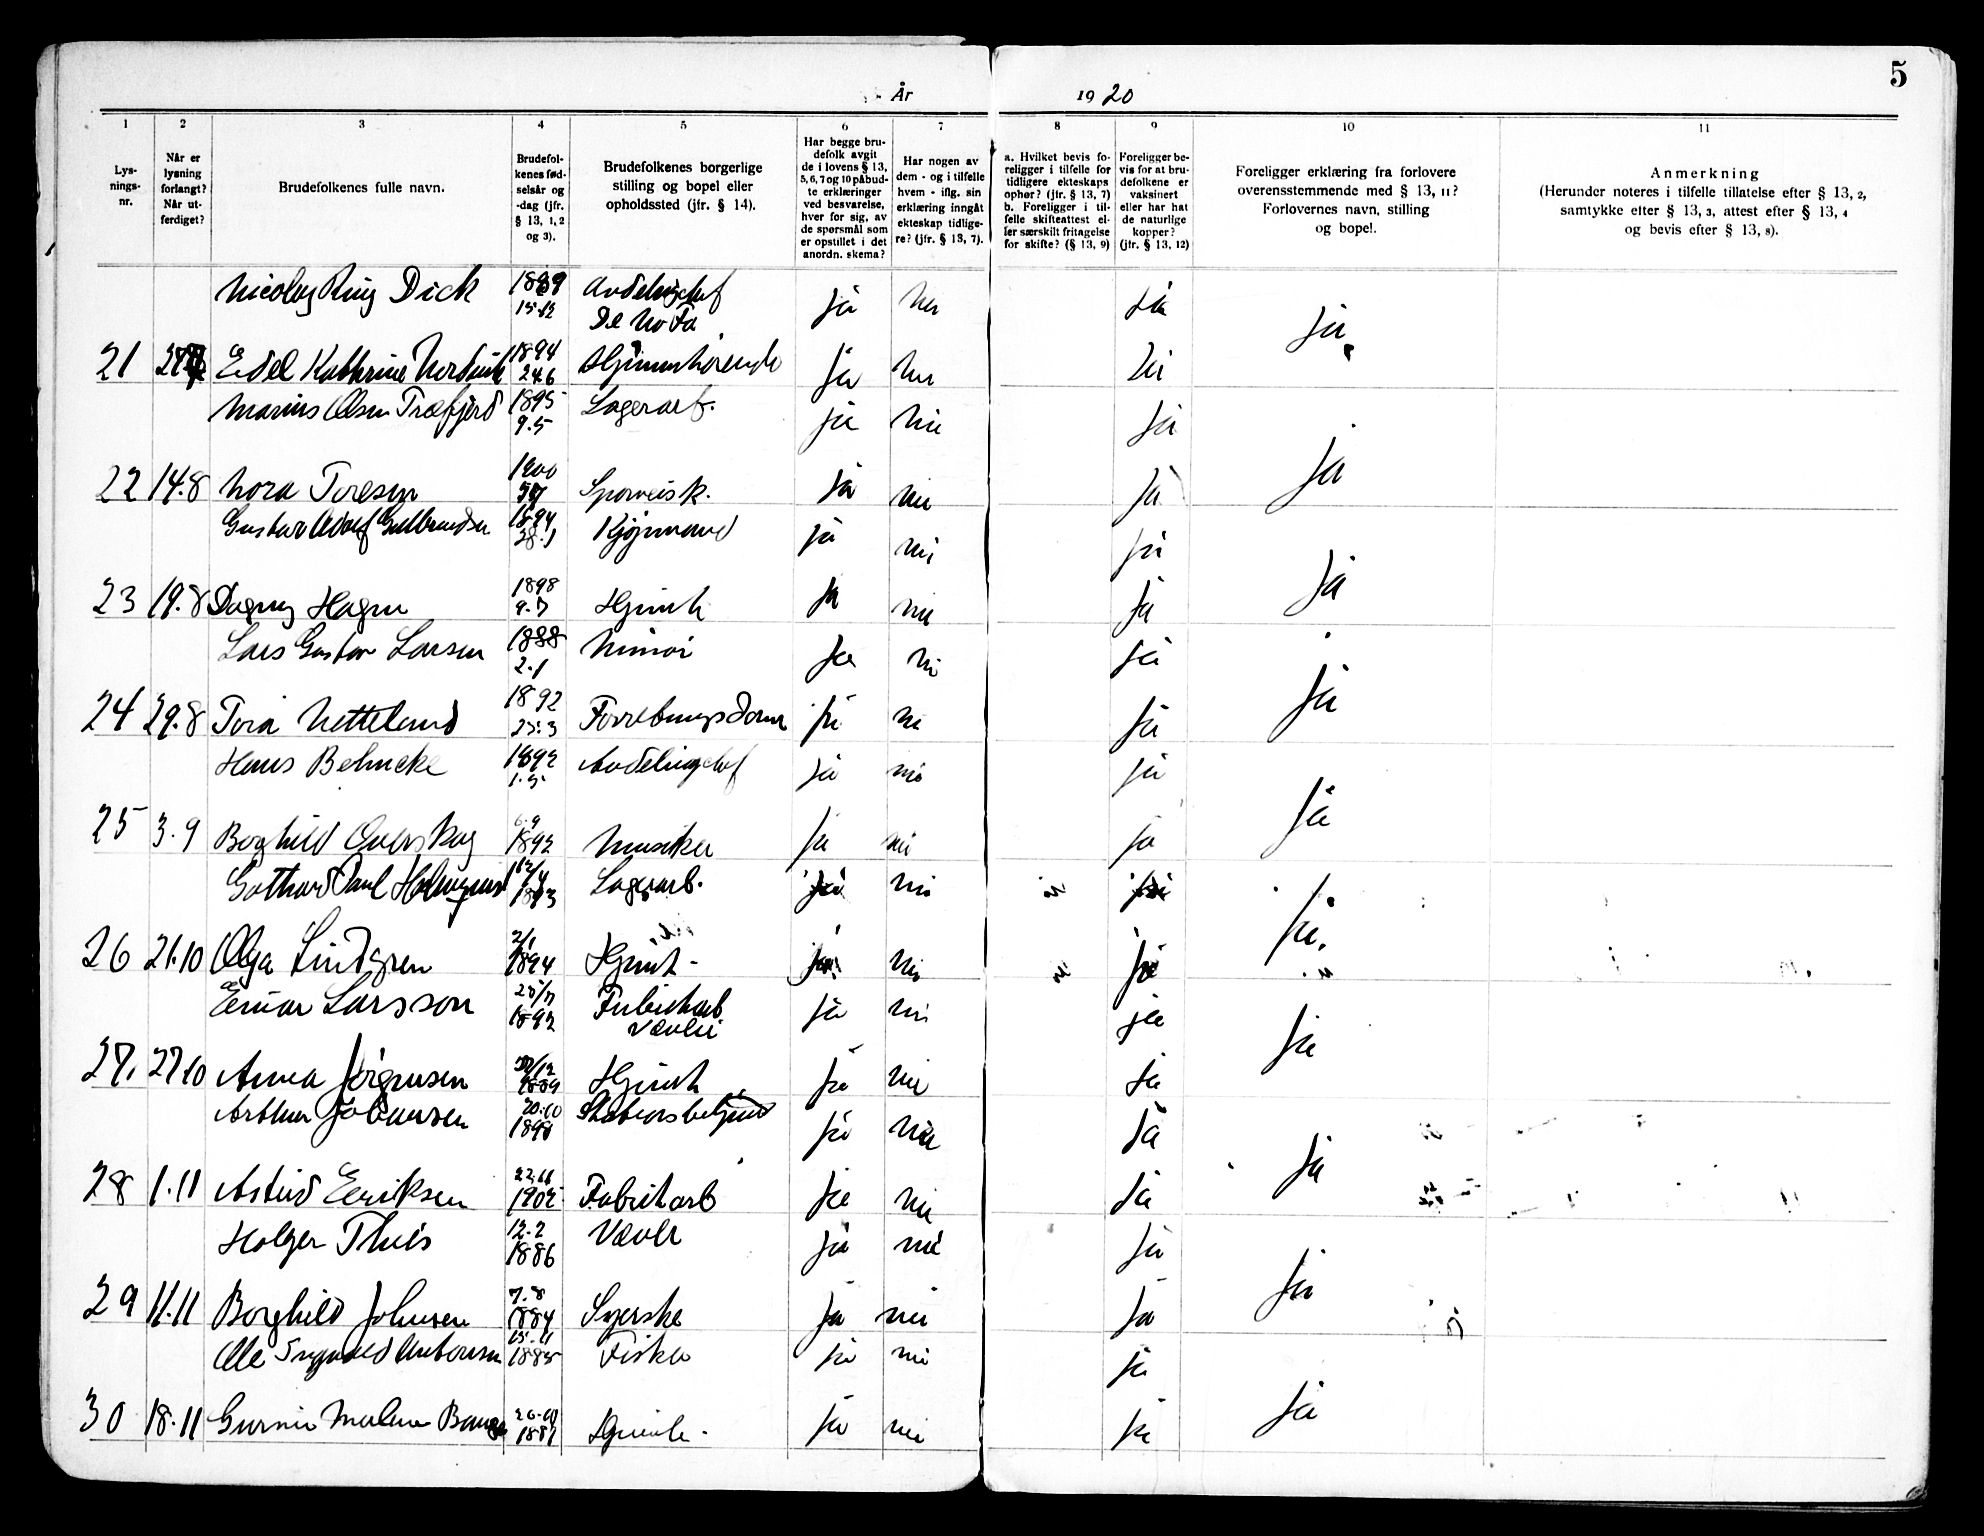 5
År 1920
1 2 3 4 5 6 7 8 9 10 11
Lysnings-nr.
Når er lysning forlangt? Når utferdiget?
Brudefolkenes fulle navn.
Brudefolkenes fødselsår og -dag (jfr. § 13, 1, 2 og 3).
Brudefolkenes borgerlige stilling og bopel eller opholdssted (jfr. § 14).
Har begge brudefolk avgit de i lovens § 13, 5, 6, 7 og 10 påbudte erklæringer ved besvarelse, hver for sig, av de spørsmål som er opstillet i det anordn. skema?
Har nogen av dem - og i tilfelle hvem - iflg. sin erklæring inngått ekteskap tidligere? (jfr. § 13, 7).
a. Hvilket bevis foreligger i tilfelle for tidligere ekteskaps ophør? (jfr. § 13, 7) b. Foreligger i tilfelle skifteattest eller særskilt fritagelse for skifte? (§ 13, 9)
Foreligger bevis for at brudefolkene er vaksinert eller har hat de naturlige kopper? (jfr. § 13, 12)
Foreligger erklæring fra forlovere overensstemmende med § 13, 11? Forlovernes navn, stilling og bopel.
Anmerkning (Herunder noteres i tilfelle tillatelse efter § 13, 2, samtykke efter § 13, 3, attest efter § 13, 4 og bevis efter § 13, 8).
Nicolay Ring Dick 1889 15.12 Avdelingchef De No Fa ja nei ja ja
21 Edel Kathrine 1894 24.6 Hjemmehørende ja nei ja
Marius Olsen Træfjord 1895 9.5 Lagerarb. ja nei ja
22 14.8 Nora Toresen 1900 Sporveisk. ja nei ja ja
Gustav Adolf Gulbrandsen 1894 28.1 ja nei ja
23 19.8 Dagny Hagen 1898 9.7 Hjemh ja nei ja ja
Lars Gustav Larsen 1888 2.1 ja nei ja
24 29.8 Tora Netteland 1892 25.3 Forretningsdame ja nei ja ja
Hans Behncke 1892 1.5 Avdelingchef ja nei ja
25 3.9 Borghild Overskog 6.9 1892 Musiker ja nei ja ja
Gotthard Paul Holmquist 1893 Lagerarb. ja nei ja
26 21.10 Olga Lindgren 2/1 1894 Hjemh - ja nei ja ja.
Einar Larsson 1892 Fabrikarb Væveri ja nei ja
27. 27.10 Anna Jörgensen 1889 Hjemh ja nei ja ja
Arthur Johansen 20.10 1898 Stationsbetjent ja nei ja
28 1.11 Astrid Eeriksen 22.11 1902 Fabrikarb ja nei ja ja
Holger Thiis 12.2 1886 Væver ja nei ja
29 11.11 Borghild Johnsen 7.8 1884 Syerske ja nei ja ja
Ole Sigvald Antonsen 15.11 1885 Fisker ja nei ja
30 18.11 Malene 1881 Hjemh. ja nei ja ja